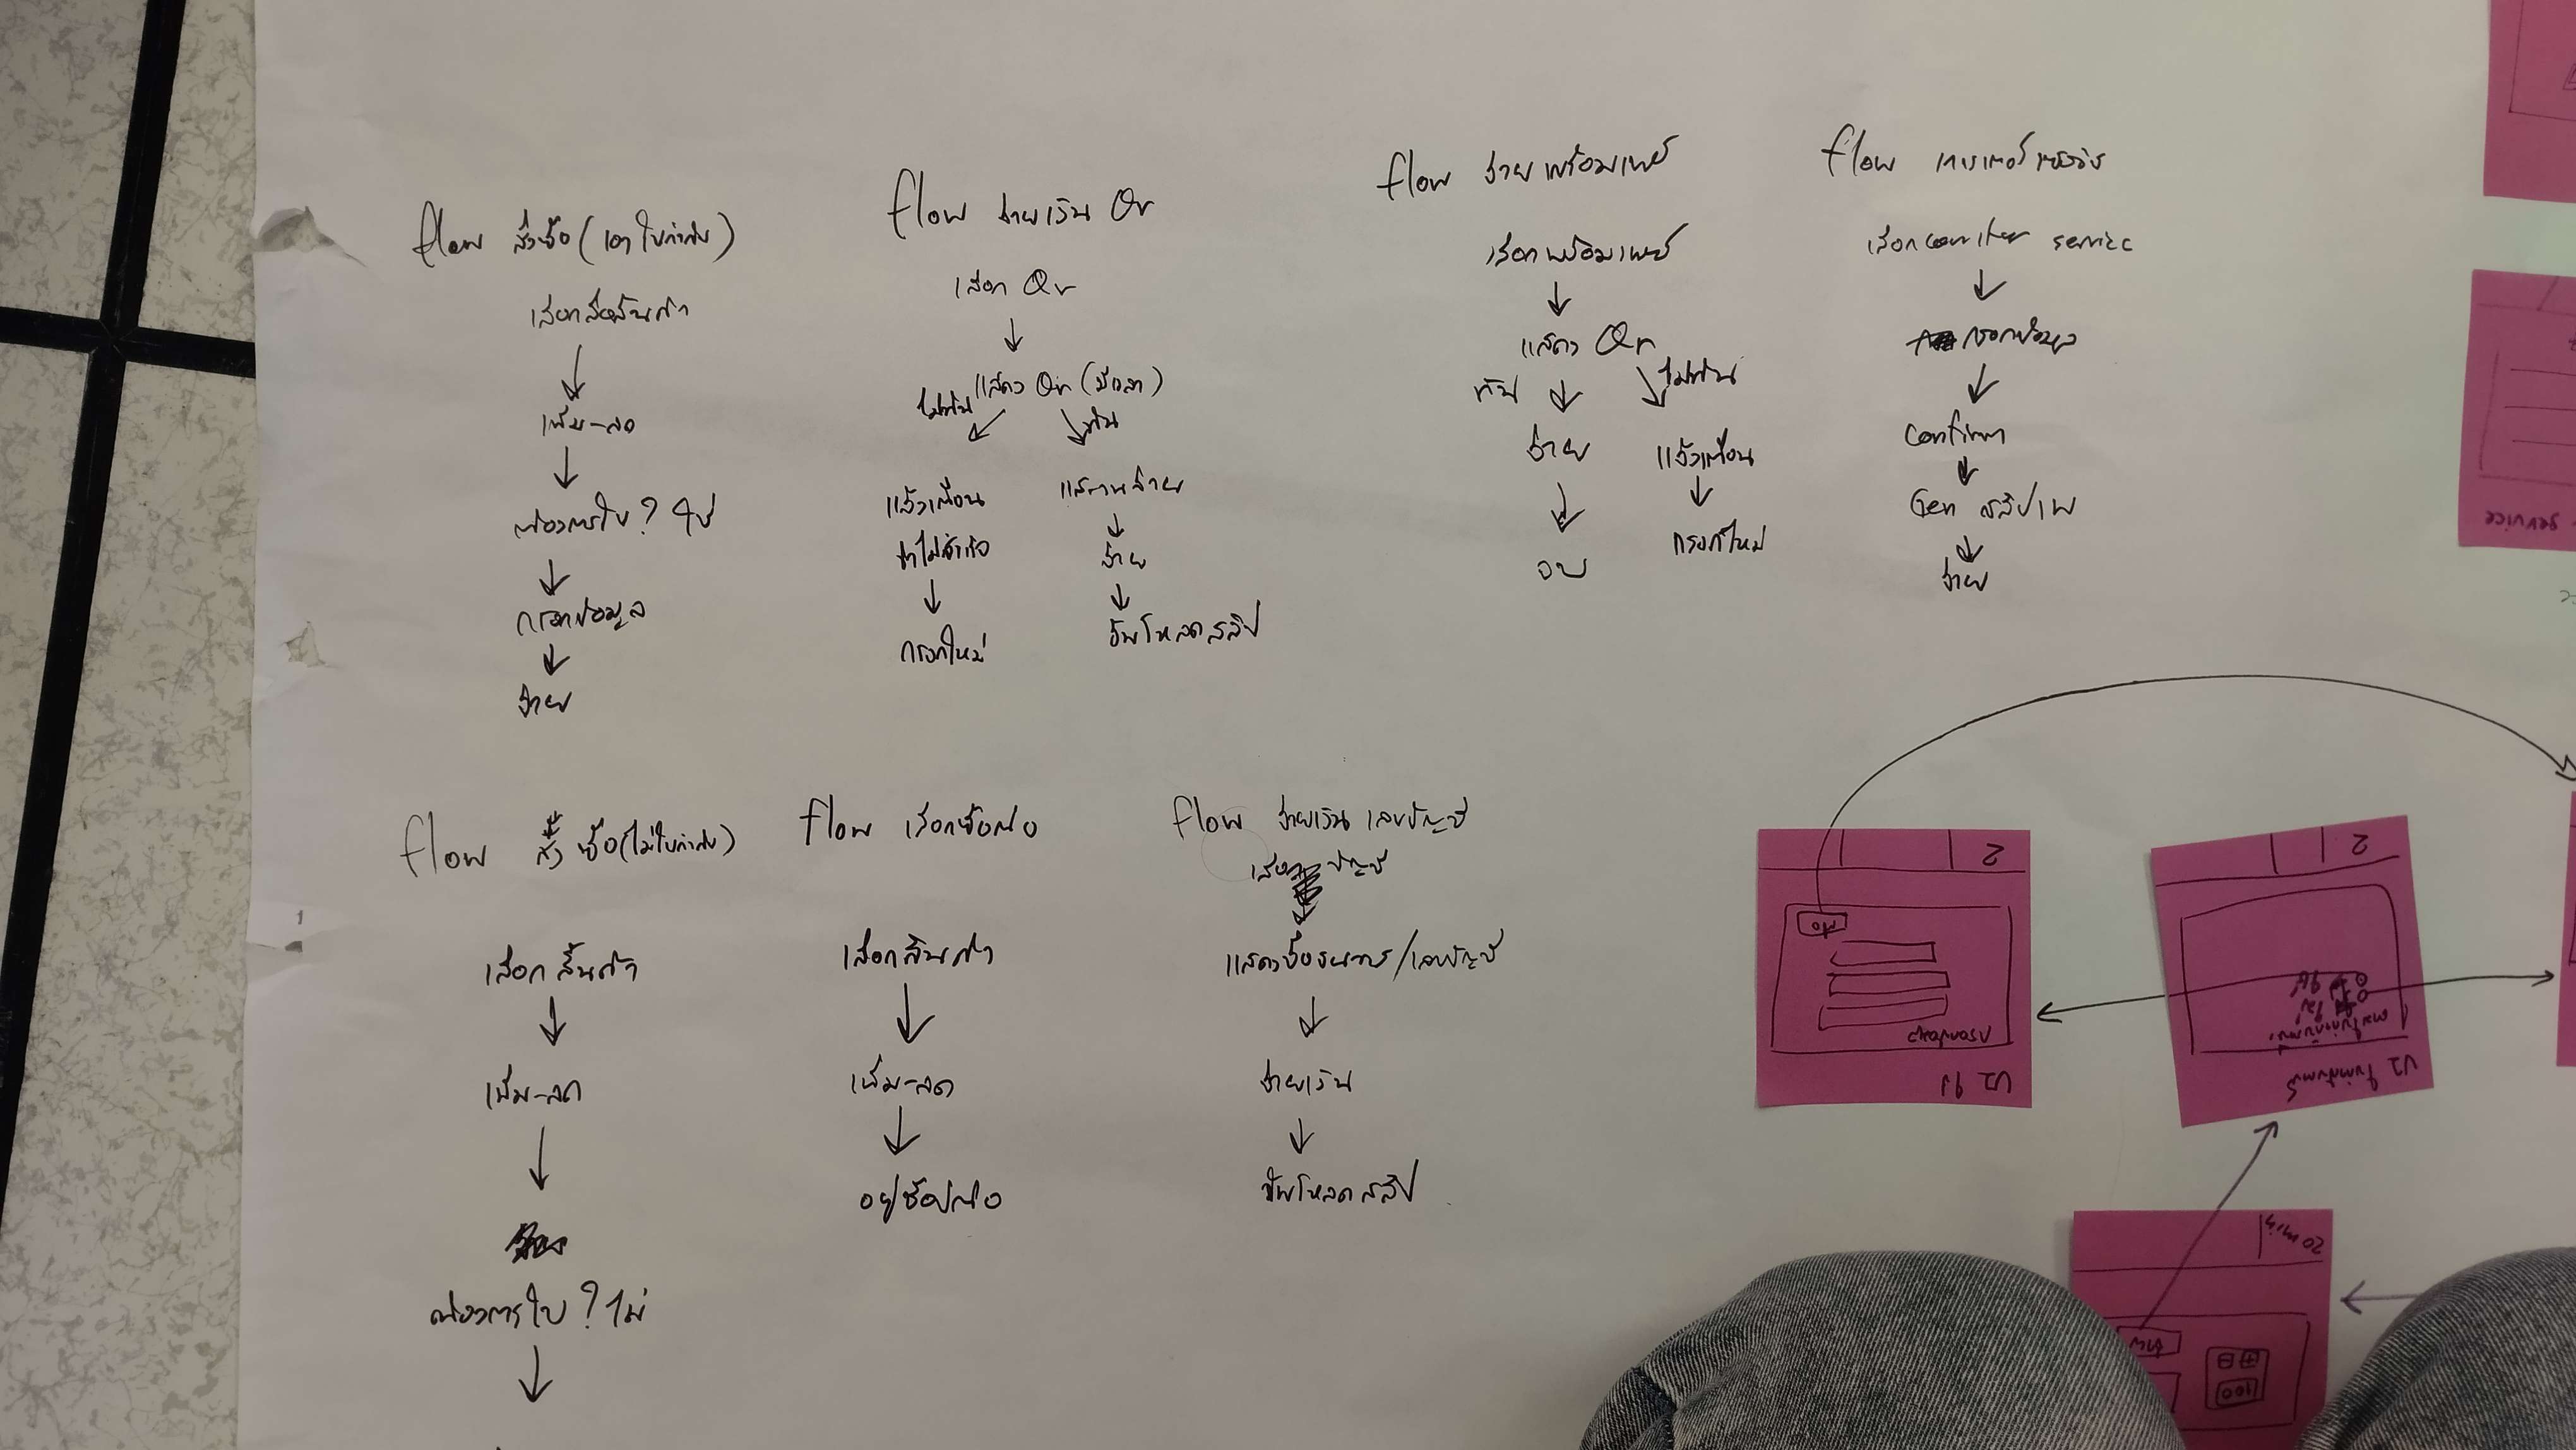 flow สั่งซื้อ (เอาใบกำกับ)
เลือกสินค้า
เพิ่ม-ลด
ต้องการใบ? ใช่
กรอกข้อมูล
จ่าย
flow จ่ายเงิน Qr
เลือก Qr
แสดง Qr (มีเวลา)
ไม่ทัน
ทัน
แจ้งเตือน
ว่าไม่สำเร็จ
กรอกใหม่
จ่าย
อัพโหลดสลิป
flow จ่ายพร้อมเพย์
เลือกพร้อมเพย์
แสดง Qr
ทัน
ไม่ทัน
จ่าย
แจ้งเตือน
จบ
กรอกใหม่
flow เคาเตอร์เซอวิส
เลือก counter service
กรอกข้อมูล
Confirm
Gen สลิป
จ่าย
flow สั่งซื้อ (ไม่ใบกำกับ)
เลือกสินค้า
เพิ่ม-ลด
ต้องการใบ? ไม่
flow เลือกซื้อต่อ
เลือกสินค้า
เพิ่ม-ลด
อยู่ช้อปต่อ
flow จ่ายเงิน เลขบัญชี
เลือก บัญชี
แสดงชื่อธนาคาร/เลขบัญชี
จ่ายเงิน
อัพโหลดสลิป
service
2
ต่อ
กรอกข้อมูล
2
20 หน้า
100
1